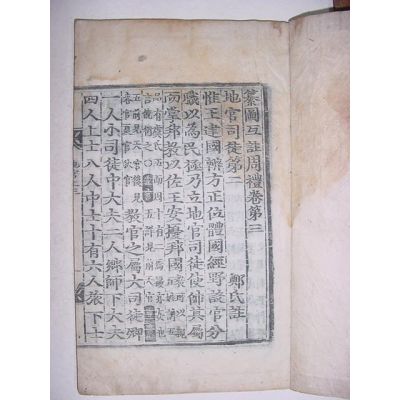 纂圖互註周禮卷第三
地官司徒第二
鄭氏註
惟王建國辨方正位體國經野設官分
職以為民極乃立地官司徒使帥其屬
而掌邦敎以佐王安擾邦國
敎官之屬大司徒卿
一人小司徒中大夫二人鄉師下大夫
四人上士八人中士十有六人旅下士